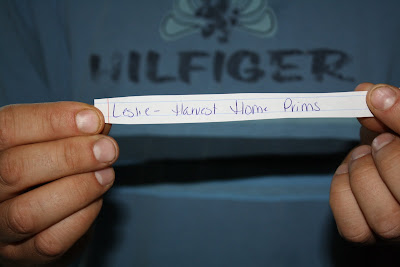 HILFIGER
Leslie - Harvest Home Prims